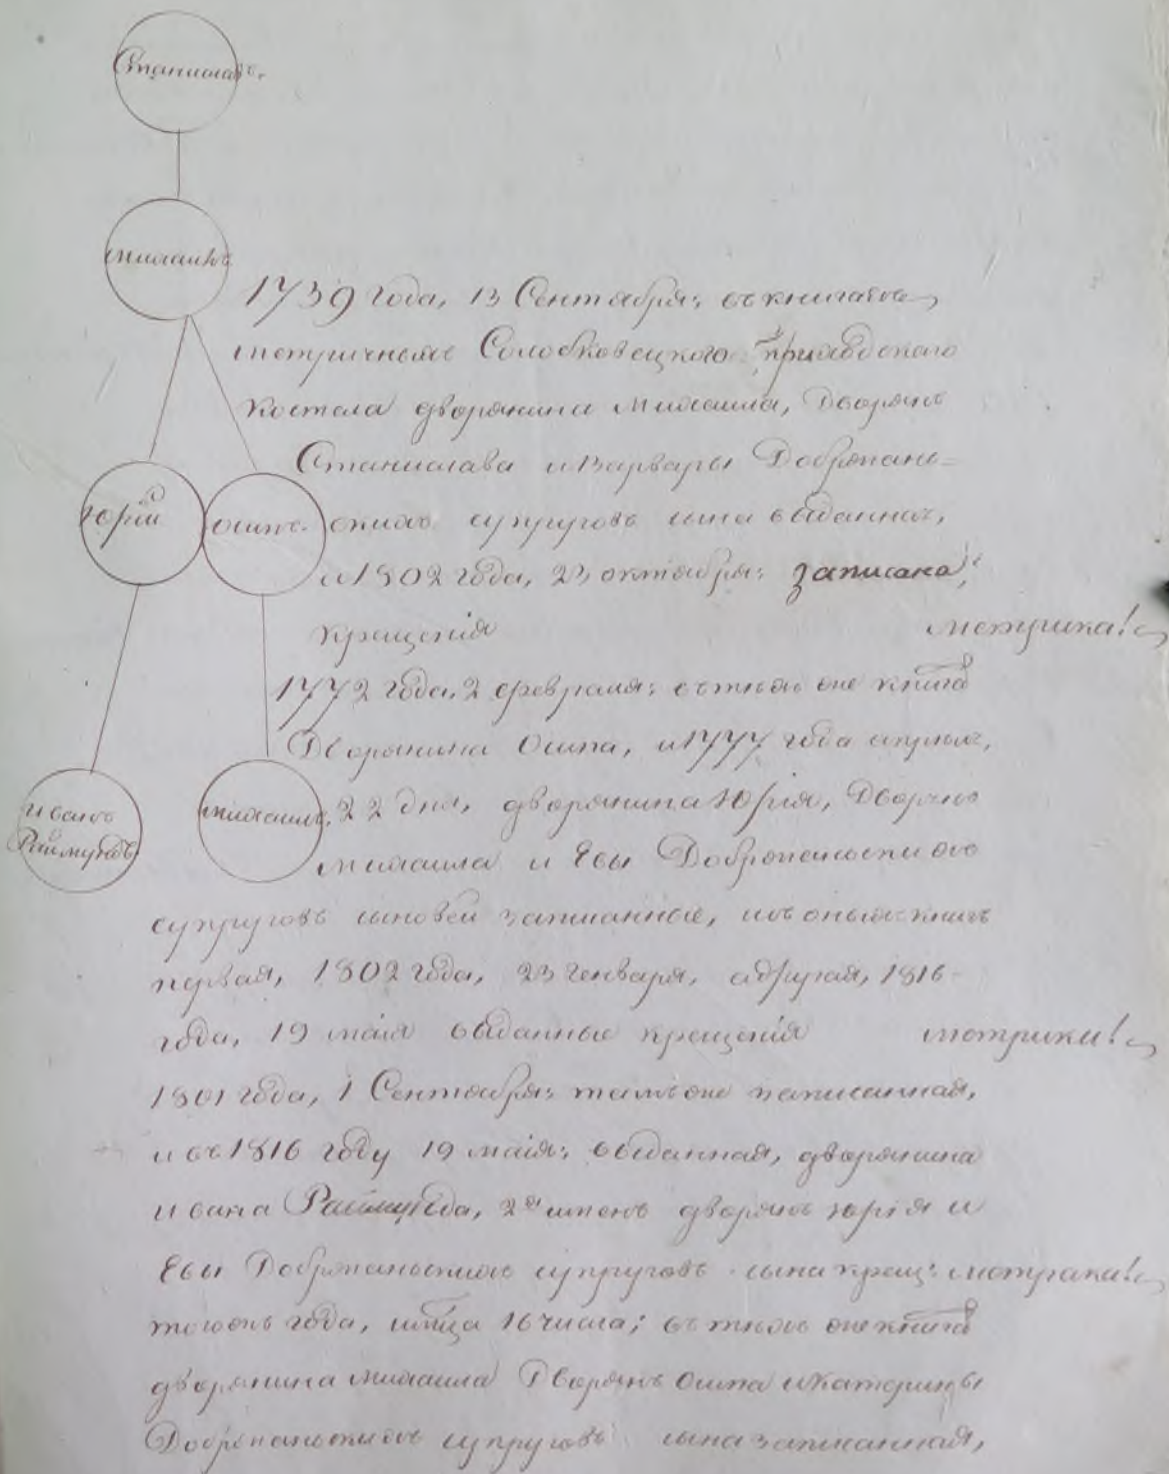 Станиславъ.
Михаилъ
1739 года, 13 Сентября: въ книгахъ
метричныхъ Солобковецкого приходского
костела дворянина Михаила, Дворянъ
Станислава и Варвары Добропань=
Юрій
Осипъ.
скихъ супруговъ сына выданная,
и 1802 года, 23 октября: записана
крещенія метрика!
1772 года, 2 февраля: въ тѣхъ же книга
Дворянина Осипа, и 1777 года апреля,
Иванъ
Раймундъ
Михаилъ.
22 дня, дворянина Юрія, Дворянъ
Михаила и Евы Добропаньскихъ
супруговъ сыновей записанные, изъ оныхъ книгъ
первая, 1802 года, 23 генваря, а другая, 1816
года, 19 маія выданные крещенія метрики!
1801 года, 1 Сентября: тамъ же написанная,
и въ 1816 году 19 маія: выданная, дворянина
Ивана Раймунда, 2хъ именъ дворянъ Юрія и
Евы Добропаньскихъ супруговъ сына крещ: метрака!
того жъ года, 16 числа; въ тѣхъ же книга
дворянина Михаила Дворянъ Осипа и Катерины
Добропаньскихъ супруговъ сына записанная,